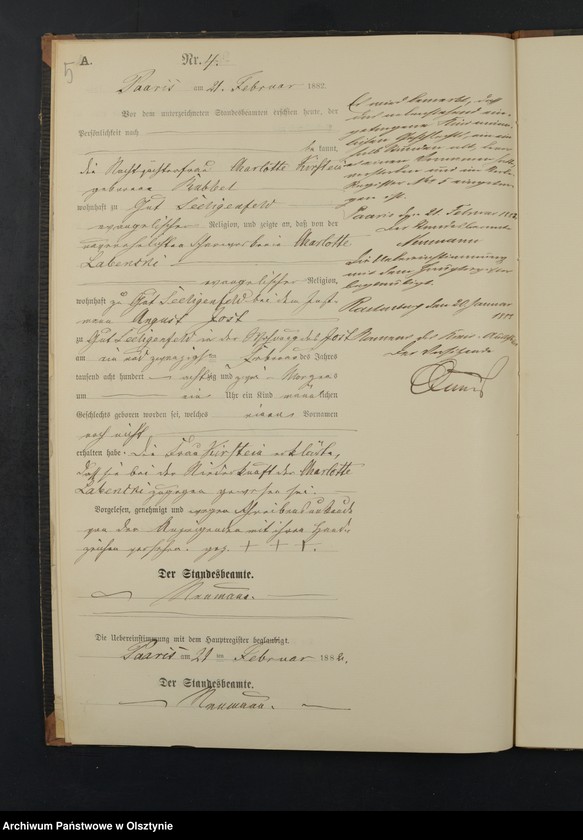 5
A.
Nr. 4.
Paaris am 21. Februar 1882.
Vor dem unterzeichneten Standesbeamten erschien heute, der
Persönlichkeit nach
be kannt,
die Nachtwächterfrau Charlotte Kirstein
geborene Kabbel
wohnhaft zu Gut Seeligenfeld
evangelischer Religion, und zeigte an, daß von der
unverehelichten Charlotte
Labenski
evangelischer Religion,
wohnhaft zu Gut Seeligenfeld bei dem
August Jost
zu Gut Seeligenfeld in der Wohnung des Jost
am ein und zwanzigsten Februar des Jahres
tausend acht hundert achtzig und zwei Morgens
um ein Uhr ein Kind männlichen
Geschlechts geboren worden sei, welches einen Vornamen
noch nicht
erhalten habe. Die Frau Kirstein erklärte,
daß sie bei der Niederkunft der Charlotte
Labenski zugegen gewesen sei.
Vorgelesen, genehmigt und wegen Schreibensunkunde
von der Anzeigenden mit ihrem Hand-
zeichen versehen. gez. + + +.
Der Standesbeamte.
Naumann.
Die Uebereinstimmung mit dem Hauptregister beglaubigt.
Paaris am 21 ten Februar 1882.
Der Standesbeamte.
Naumann.
Es wird bemerkt, daß
das nebenstehend ein-
getragene Kind
lichen Geschlechts,
Vornamen
gen ist.
Paaris den 21. Februar 1882
Der Standesbeamte
Naumann
Die Uebereinstimmung
mit dem Hauptregister
beglaubigt.
Rastenburg den 20 Januar
Der Vorsitzende
Archiwum Państwowe w Olsztynie